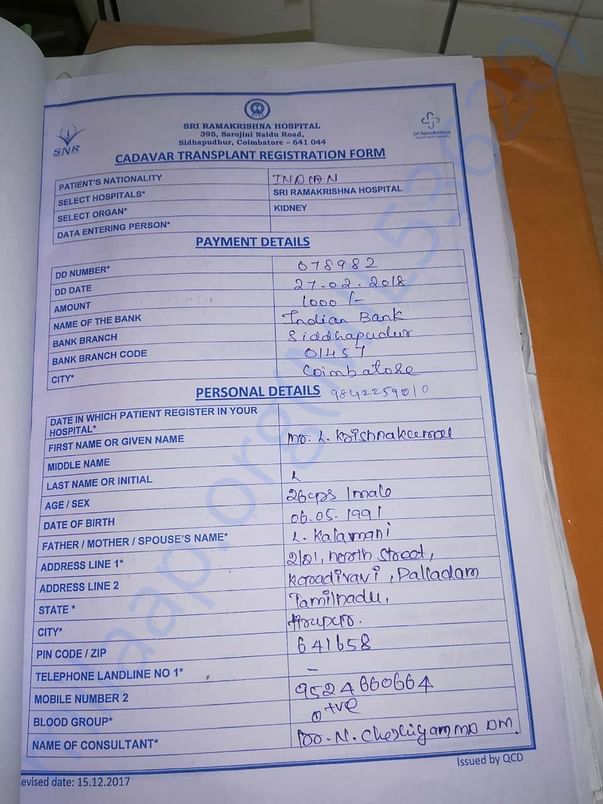 SNR
SRI RAMAKRISHNA HOSPITAL
395, Sarojini Naidu Road,
Sidhapudhur, Coimbatore – 641 044
Sri Ramakrishna
CADAVAR TRANSPLANT REGISTRATION FORM
PATIENT'S NATIONALITY INDIAN
SELECT HOSPITALS* SRI RAMAKRISHNA HOSPITAL
SELECT ORGAN* KIDNEY
DATA ENTERING PERSON*
PAYMENT DETAILS
DD NUMBER* 078982
DD DATE 27.02.2018
AMOUNT 1000/-
NAME OF THE BANK Indian Bank
BANK BRANCH Siddhapudur
BANK BRANCH CODE 01457
CITY* Coimbatore
PERSONAL DETAILS 9842259010
DATE IN WHICH PATIENT REGISTER IN YOUR
HOSPITAL*
FIRST NAME OR GIVEN NAME Mr. L. Krishnakumar
MIDDLE NAME
LAST NAME OR INITIAL L
AGE / SEX 26 / male
DATE OF BIRTH 06.05.1991
FATHER / MOTHER / SPOUSE'S NAME* L. Kalamani
ADDRESS LINE 1* North Street,
ADDRESS LINE 2 , Palladam
STATE * Tamilnadu,
CITY* Tirupur.
PIN CODE / ZIP 641658
TELEPHONE LANDLINE NO 1* –
MOBILE NUMBER 2 9524660664
BLOOD GROUP* +ve
NAME OF CONSULTANT* Dr. N. MD DM.
evised date: 15.12.2017
Issued by QCD